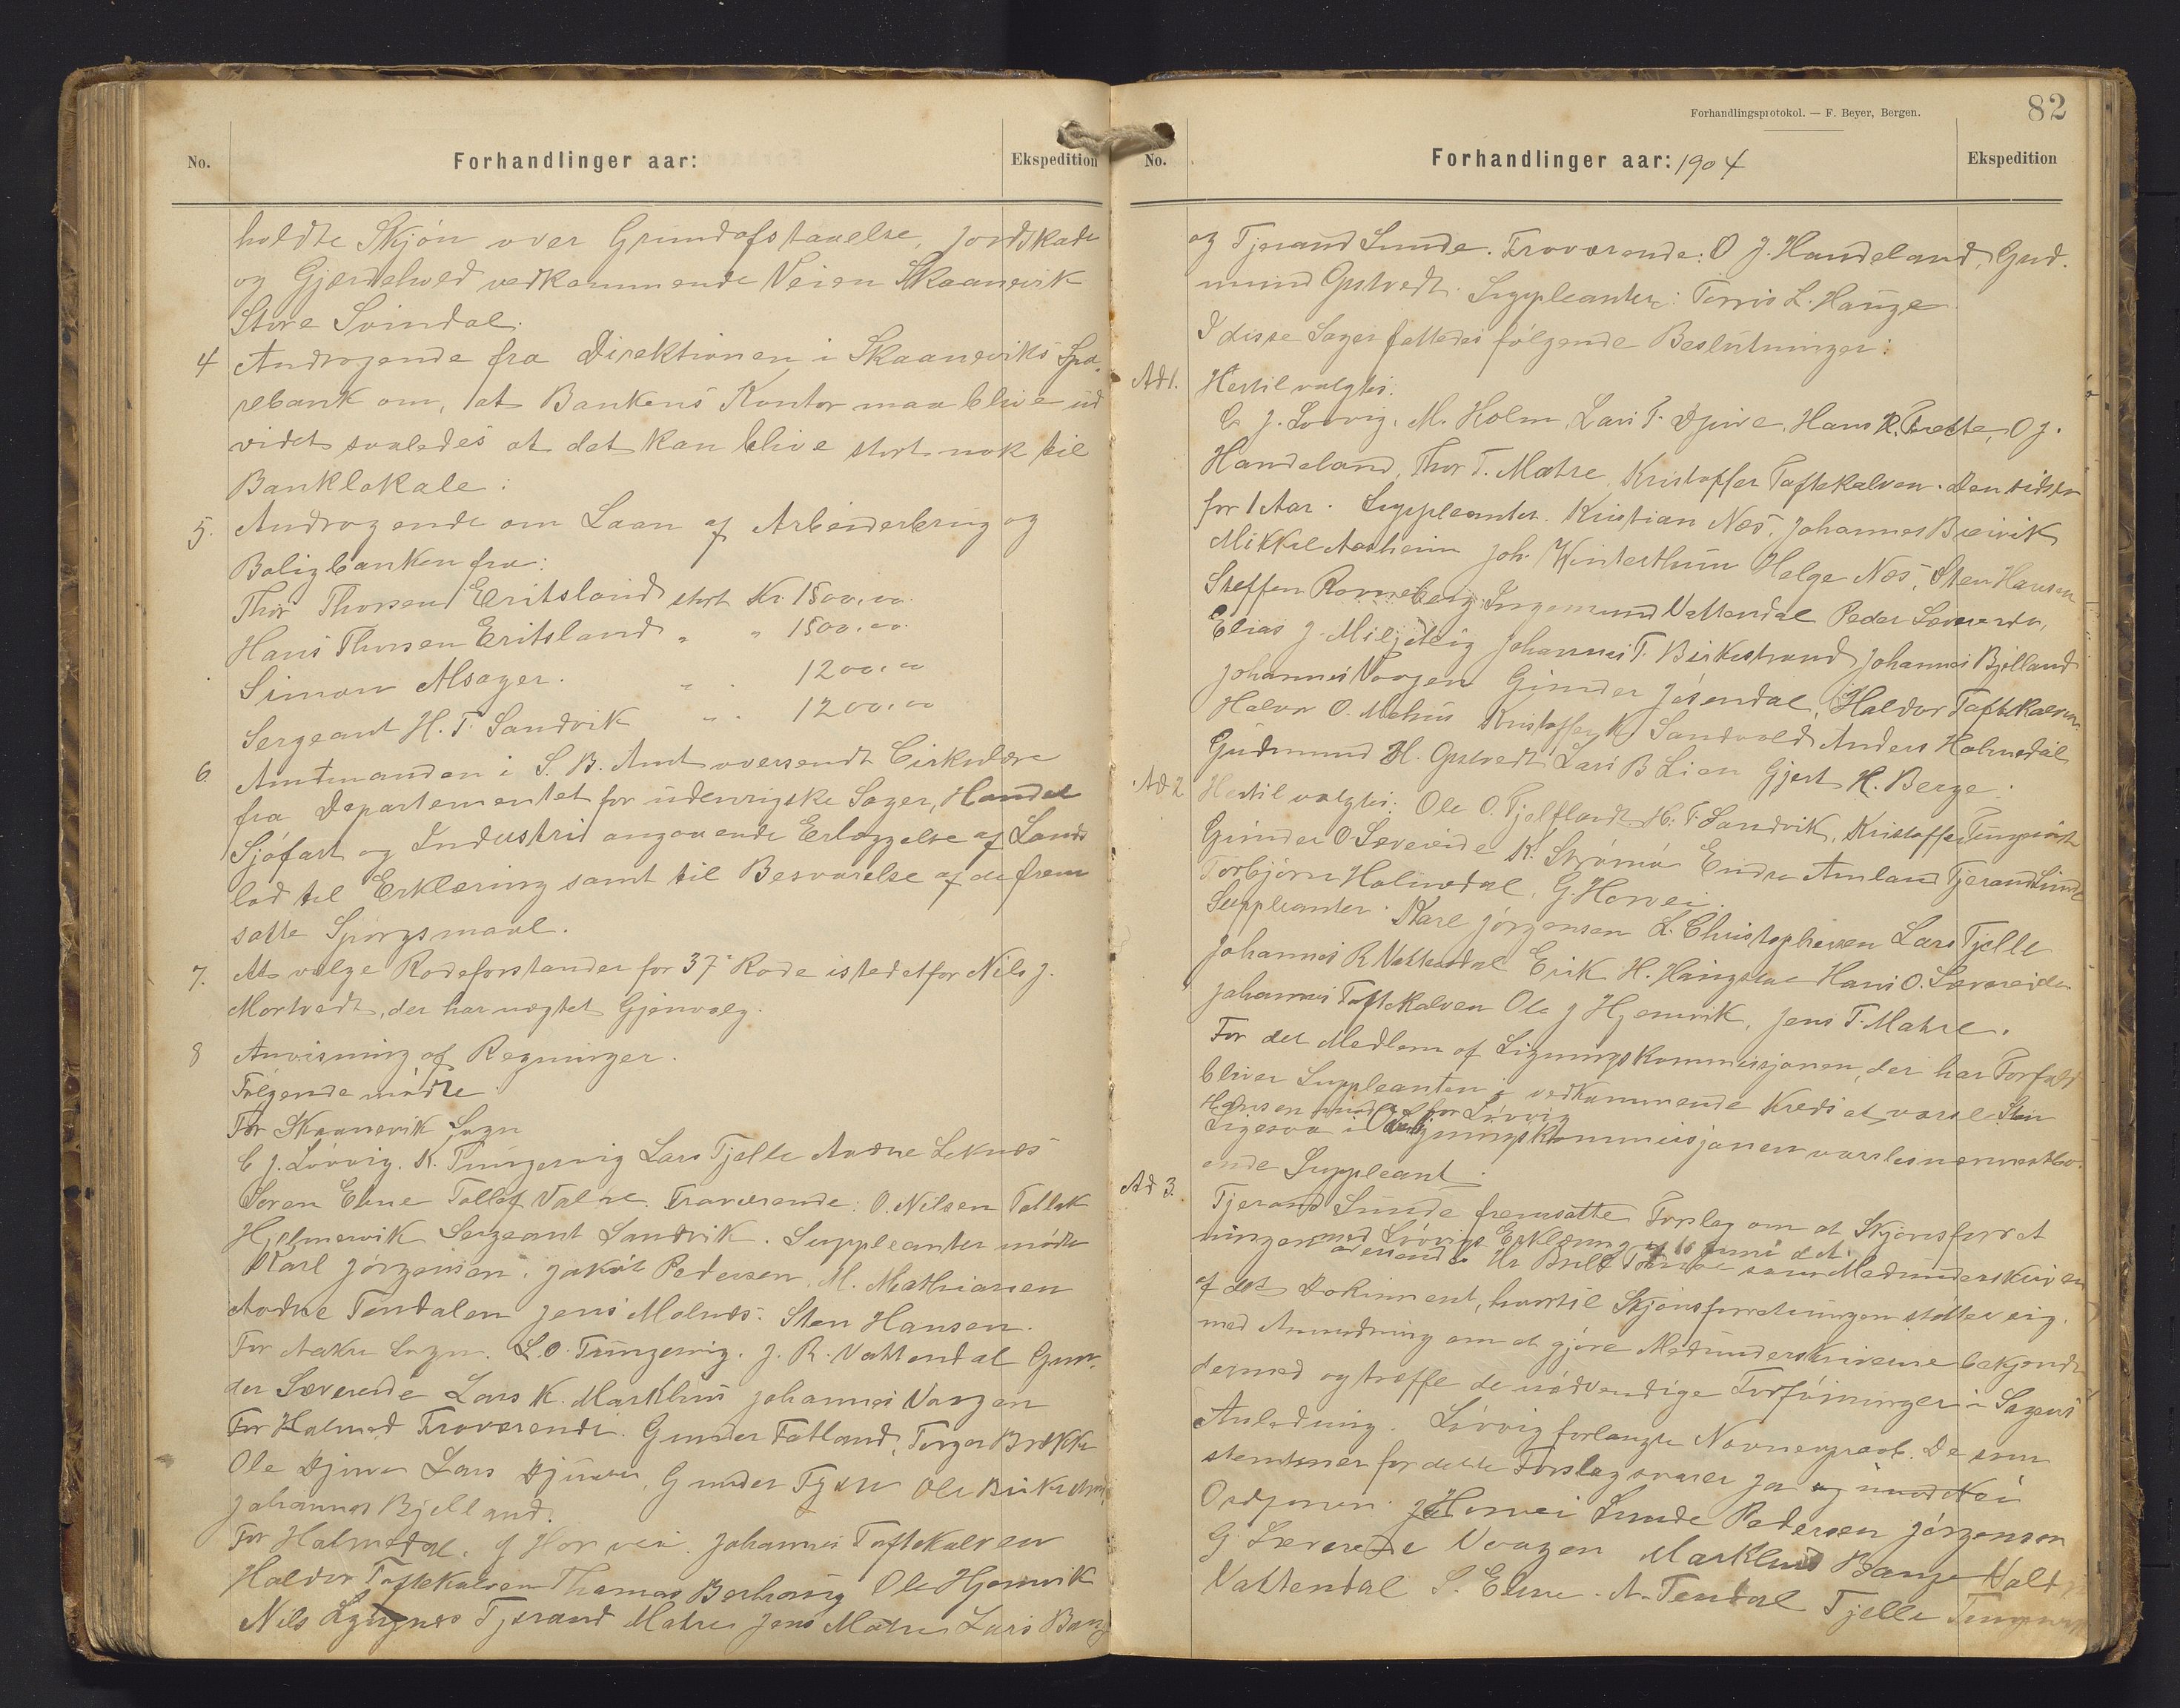 No.
Forhandlinger aar:
Ekspedition
holdte Skjøn over Grundafstaaelse, Jordskade
og Gjærdehold vedkommende Veien Skaanevik
Store Svindal.
4 Andragende fra Direktionen i Skaaneviks Spa-
rebank om, at Bankens Kontor maa blive ud
videt saaledes at det kan blive stort nok til
Banklokale:
5. Andragende om Laan af Arbeiderbrug og
Boligbanken fra:
Thor Thorsen Eritsland stort Kr. 1500,00
Hans Thorsen Eritsland " " 1500,00
Simon Alsager. " " 1200,00
Sergeant H. T. Sandvik " " 1200,00
6. Amtmanden i S. B. Amt oversendt Cirkulære
fra Departementet for udenrigske Sager, Handel
Sjøfart og Industri angaaende Erlæggelse af Lands
lod til Erklæring samt til Besvarelse af de frem
satte Spørgsmaal.
7. At vælge Rodeforstander for 37te Rode istedetfor Nils J.
Mortvedt, der har nægtet Gjenvalg.
8 Anvisning af Regninger.
Følgende mødte
For Skaanevik Sogn
C J. Løvvig. K. Tungesvig Lars Tjelle Andne Leknes
Søren Ebne Tollef Valre. Fraværende: O. Nilsen Tollak
Hjelmervik Sergeant Sandvik. Suppleanter mødte
Karl Jørgensen. Jakob Pedersen. M. Mathiasen
Andne Tendalen Jens Molnes. Sten Hansen.
For Aakre Sogn. L. O. Tungesvig. J. R. Vattendal Gun-
der Sævereide Lars K. Markhus Johannes Vaagen
For Holmed Fraværende. Gunder Fatland, Torger Brekke
Ole Djuve Lars Djuve, Gunder Fjære Ole Birkestrand
Johannes Bjelland.
For Holmedal. G Horvei. Johannes Toftekalven
Haldor Toftekalven Thomas Berhaug Ole Hjemvik
Nils Lyngnes Tjerand Matre Jens Matre Lars Bang
Forhandlingsprotokol. — F. Beyer, Bergen.
82
No.
Forhandlinger aar: 1904
Ekspedition
og Tjerand Sunde. Fraværende: O J. Handeland, Gud-
mund Opstvedt. Suppleanter: Torris L. Hauge
I disse Sager fattedes følgende Beslutninger:
Ad 1. Hertil valgtes:
C. J. Løvvig. M. Holm Lars T. Djuve. Hans R. Tvette, O J.
Handeland, Thor T. Matre Kristoffer Toftekalven. Den sidste
for 1 Aar. Suppleanter. Kristian Næs, Johannes Breivik
Mikkel Aasheim Joh. Winterthun Helge Næs, Sten Hansen
Steffen Ronneberg Ingemund Vattendal Peder Sævereide,
Elias J. Miljeteig Johannes T. Birkestrand Johannes Bjelland
Johannes Vaagen Gunder Jøsendal, Haldor Toftekalven
Halvor O. Mehus Kristoffer K. Sandvold Anders Holmedal
Gudmund H. Opstvedt Lars B Lien Gjert H. Berge.
Ad 2 Hertil valgtes: Ole O. Fjelflaadt H. T. Sandvik, Kristoffer Tungesvik
Gunder O Sævereide K. Strømø Endre Amland Tjerand Sunde
Torbjørn Holmedal, G. Horvei.
Suppleanter. Karl Jørgensen L. Christophersen Lars Tjelle
Johannes R Vattendal Erik H. Haugseter Hans O. Sævereide
Johannes Toftekalven Ole J Hjemvik, Jens T. Matre.
For det Medlem af Ligningskommissjonen, der har Forfald
bliver Suppleanten i vedkommende Kreds at varsle. Sten
Hansen mødte for Løvvig
Ligesaa i Overligningskommissjonen varsles nærmestbo-
ende Suppleant.
Ad 3. Tjerand Sunde fremsatte Forslag om at Skjønsforret
ningen med Løvvigs Erklæring af 10 Juni d. A.
oversendes Hr Brill Tønne som Medunderskriver
af det Dokument, hvortil Skjønsforretningen støtter sig,
med Anmodning om at gjøre Medunderskriverne bekjendt
dermed og træffe de nødvendige Forføininger i Sagens
Anledning. Løvvig forlangte Navneopraab. De som
stemmer for dette Forslag svarer Ja og imod Nei
Ordføreren Ja Horvei Sunde Pedersen Jørgensen
G. Sævereide Vaagen Markhus Bange Valt
Vattendal S. Ebne. A. Tendal Tjelle Tungesvik